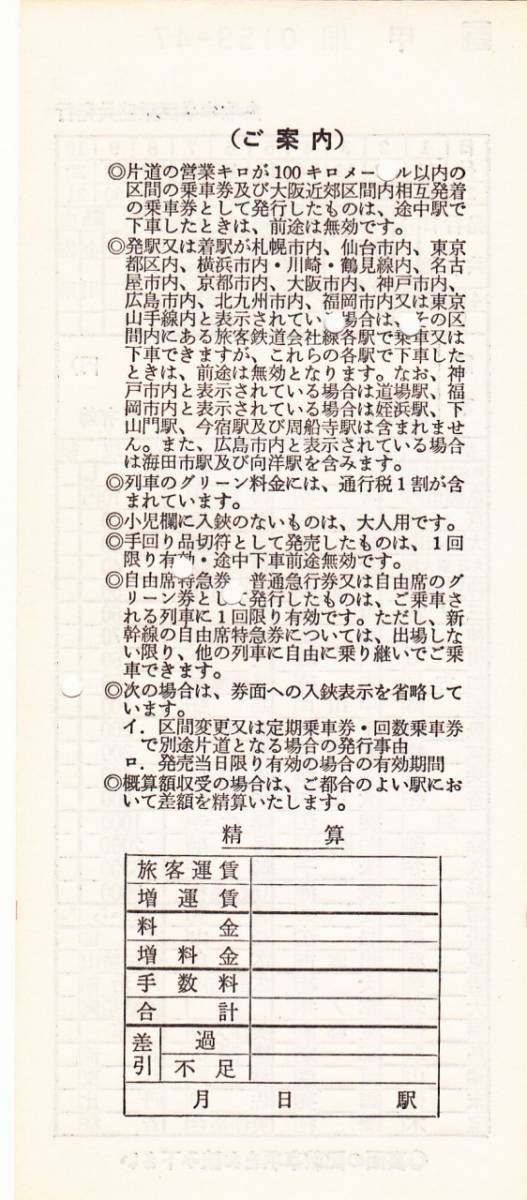 (ご案内)
◎片道の営業キロが100キロメー ル以内の
区間の乗車券及び大阪近郊区間内相互発着
の乗車券として発行したものは、途中駅で
下車したときは、前途は無効です。
◎発駅又は着駅が札幌市内、仙台市内、東京
都区内、横浜市内・川崎・鶴見線内、名古
屋市内、京都市内、大阪市内、神戸市内、
広島市内、北九州市内、福岡市内又は東京
山手線内と表示されている場合は、その区
間内にある旅客鉄道会社線各駅で乗車又は
下車できますが、これらの各駅で下車した
ときは、前途は無効となります。なお、神
戸市内と表示されている場合は道場駅、福
岡市内と表示されている場合は姪浜駅、下
山門駅、今宿駅及び周船寺駅は含まれませ
ん。また、広島市内と表示されている場合
は海田市駅及び向洋駅を含みます。
◎列車のグリーン料金には、通行税1割が含
まれています。
◎小児欄に入鋏のないものは、大人用です。
◎手回り品切符として発売したものは、1回
限り有効・途中下車前途無効です。
◎自由席特急券 普通急行券又は自由席のグ
リーン券として発行したものは、ご乗車さ
れる列車に1回限り有効です。ただし、新
幹線の自由席特急券については、出場しな
い限り、他の列車に自由に乗り継いでご乗
車できます。
◎次の場合は、券面への入鋏表示を省略して
います。
イ. 区間変更又は定期乗車券・回数乗車券
で別途片道となる場合の発行事由
ロ. 発売当日限り有効の場合の有効期間
◎概算額収受の場合は、ご都合のよい駅にお
いて差額を精算いたします。
精 算
旅客運賃
増運賃
料 金
増料金
手数料
合 計
差引 過
不足
月 日 駅